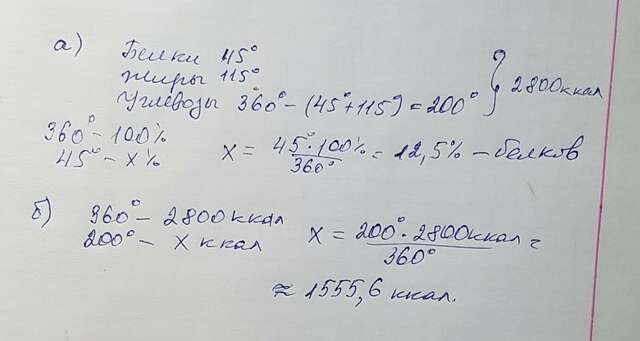 а) Белки 45°
Жиры 115°
Углеводы 360° - (45° + 115°) = 200° } 2800 ккал
360° - 100%
45° - x% x = 45° · 100% / 360° = 12,5% - белков
б) 360° - 2800 ккал
200° - x ккал x = 200° · 2800 ккал / 360° =
≈ 1555,6 ккал.